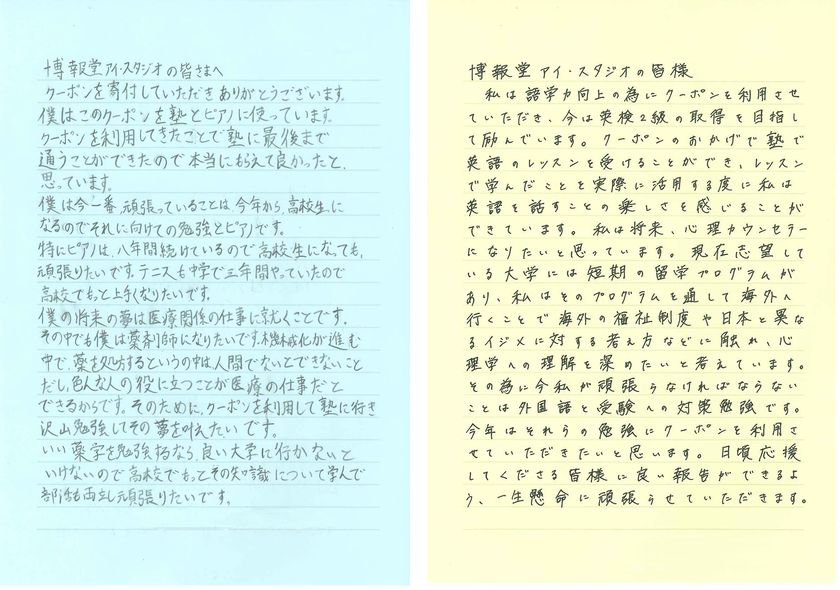 博報堂アイ・スタジオの皆さまへ
クーポンを寄付していただきありがとうございます。
僕はこのクーポンを塾とピアノに使っています。
クーポンを利用してきたことで塾に最後まで
通うことができたので本当にもらえて良かったと、
思っています。
僕は今一番、頑張っていることは、今年から、高校生に
なるのでそれに向けての勉強とピアノです。
特にピアノは、八年間続けているので高校生になっても、
頑張りたいです。テニスも中学で三年間やっていたので
高校でもっと上手くなりたいです。
僕の将来の夢は医療関係の仕事に就くことです。
その中でも僕は薬剤師になりたいです。機械化が進む
中で、薬を処方するというのは、人間でないとできないこと
だし、色んな人の役に立つことが医療の仕事だと
できるからです。そのために、クーポンを利用して塾に行き
沢山勉強してその夢を叶えたいです。
いい薬学を勉強するなら、良い大学に行かないと
いけないので高校でもっとその知識について学んで
部活も両立し頑張りたいです。
博報堂アイ・スタジオの皆様
私は語学力向上の為にクーポンを利用させ
ていただき、今は英検2級の取得を目指し
て励んでいます。クーポンのおかげで塾で
英語のレッスンを受けることができ、レッスン
で学んだことを実際に活用する度に私は
英語を話すことの楽しさを感じることが
できています。私は将来、心理カウンセラー
になりたいと思っています。現在志望して
いる大学には短期の留学プログラムが
あり、私はそのプログラムを通して海外へ
行くことで海外の福祉制度や日本と異な
るイジメに対する考え方などに触れ、心
理学への理解を深めたいと考えています。
その為に今私が頑張らなければならない
ことは外国語と受験への対策勉強です。
今年はそれらの勉強にクーポンを利用さ
せていただきたいと思います。日頃応援
してくださる皆様に良い報告ができるよ
う、一生懸命に頑張らせていただきます。